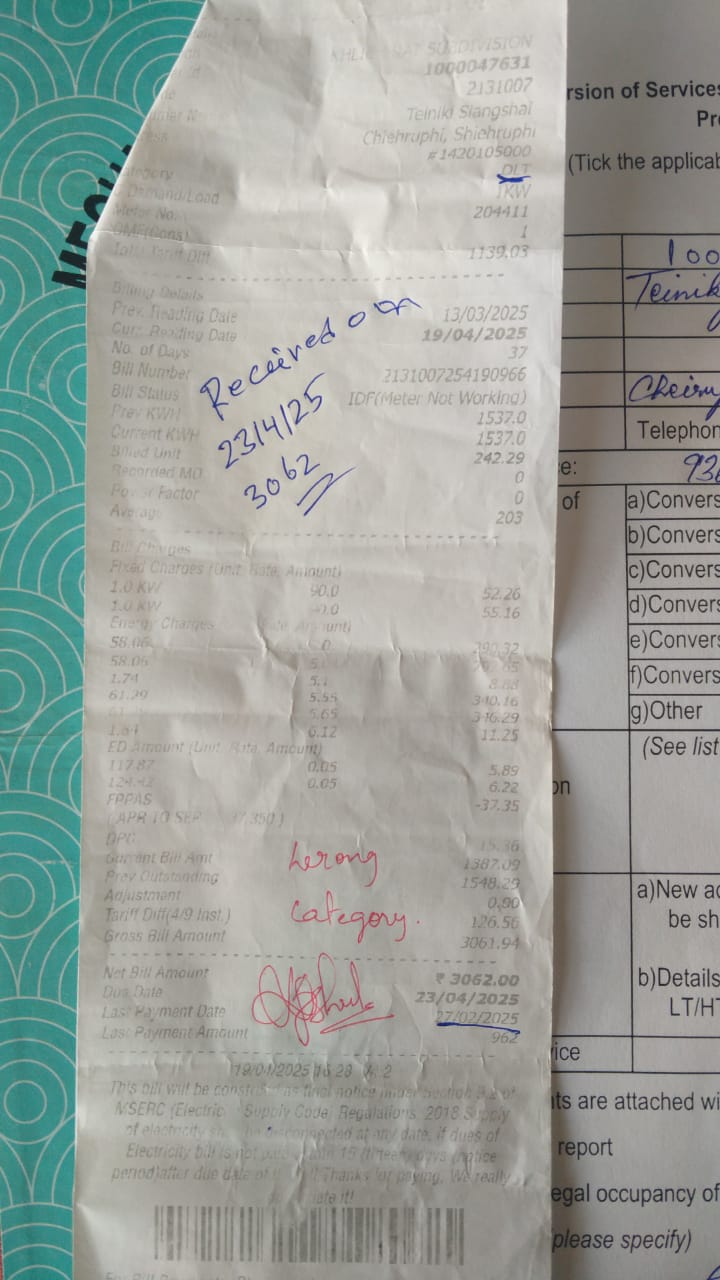 SUBDIVISION
1000047631
2131007
Teiniki Siangshai
Chiehruphi, Shiehruphi
#1420105000
DLT
Demand/Load 1KW
Meter No. 204411
OMF(Cons) 1
Total Tariff Diff 1139.03
Billing Details
Prev. Reading Date 13/03/2025
Curr. Reading Date 19/04/2025
No. of Days 37
Bill Number 2131007254190966
Bill Status IDF(Meter Not Working)
Prev KWH 1537.0
Current KWH 1537.0
Billed Unit 242.29
Recorded MD 0
Power Factor 0
Average 203
Received on
23/4/25
3062
Bill Charges
Fixed Charges (Unit, Rate, Amount)
1.0 KW 90.0 52.26
1.0 KW 55.16
Energy Charges
58.06 290.32
58.06
1.74 5.1 8.88
61.29 5.55 340.16
5.65 346.29
6.12 11.25
ED Amount (Unit, Rate, Amount)
117.87 0.05 5.89
124.42 0.05 6.22
FPPAS -37.35
DPC 15.36
Current Bill Amt 1387.09
Prev Outstanding 1548.29
Adjustment 0.90
Tariff Diff(4/9 Inst.) 126.56
Gross Bill Amount 3061.94
wrong
category.
Net Bill Amount ₹ 3062.00
Due Date 23/04/2025
Last Payment Date 27/02/2025
Last Payment Amount 962
19/04/2025
This bill will be construed as final notice under Section 9.2 of
MSERC (Electricity Supply Code) Regulations, 2018 Supply
of electricity shall be disconnected at any date, if dues of
Electricity bill is not paid within 15 (fifteen) days (notice
period)after due date of the bill Thanks for paying. We really
rsion of Services
Pr
(Tick the applicab
100
Teinik
Telephon
e: 93
of
a)Convers
b)Convers
c)Convers
d)Convers
e)Convers
f)Convers
g)Other
(See list
on
a)New ac
be sh
b)Details
LT/HT
ice
ts are attached wi
report
egal occupancy of
please specify)